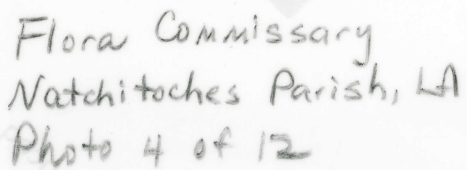 Flora Commissary
Natchitoches Parish, LA
Photo 4 of 12